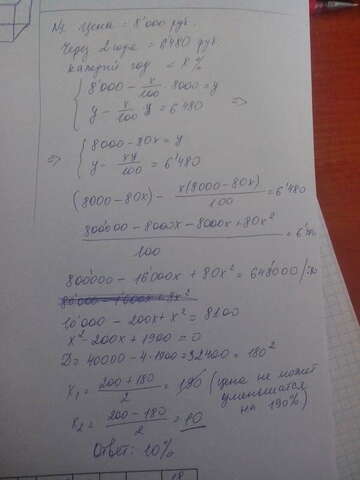 №1. Цена = 8'000 руб.
Через 2 года = 6'480 руб
каждый год = x %
8'000 - x/100 · 8000 = y
y - x/100 · y = 6'480 =>
=> 8000 - 80x = y
y - xy/100 = 6'480
(8000 - 80x) - x(8000 - 80x)/100 = 6'480
800'000 - 8000x - 8000x + 80x²/100 =
800'000 - 16'000x + 80x² = 648000
10'000 - 200x + x² = 8100
x² - 200x + 1900 = 0
D = 40000 - 4·1900 = 32400 = 180²
x₁ = 200 + 180/2 = 190 (цена не может
уменьшится
на 190%)
x₂ = 200 - 180/2 = 10
Ответ: 10%